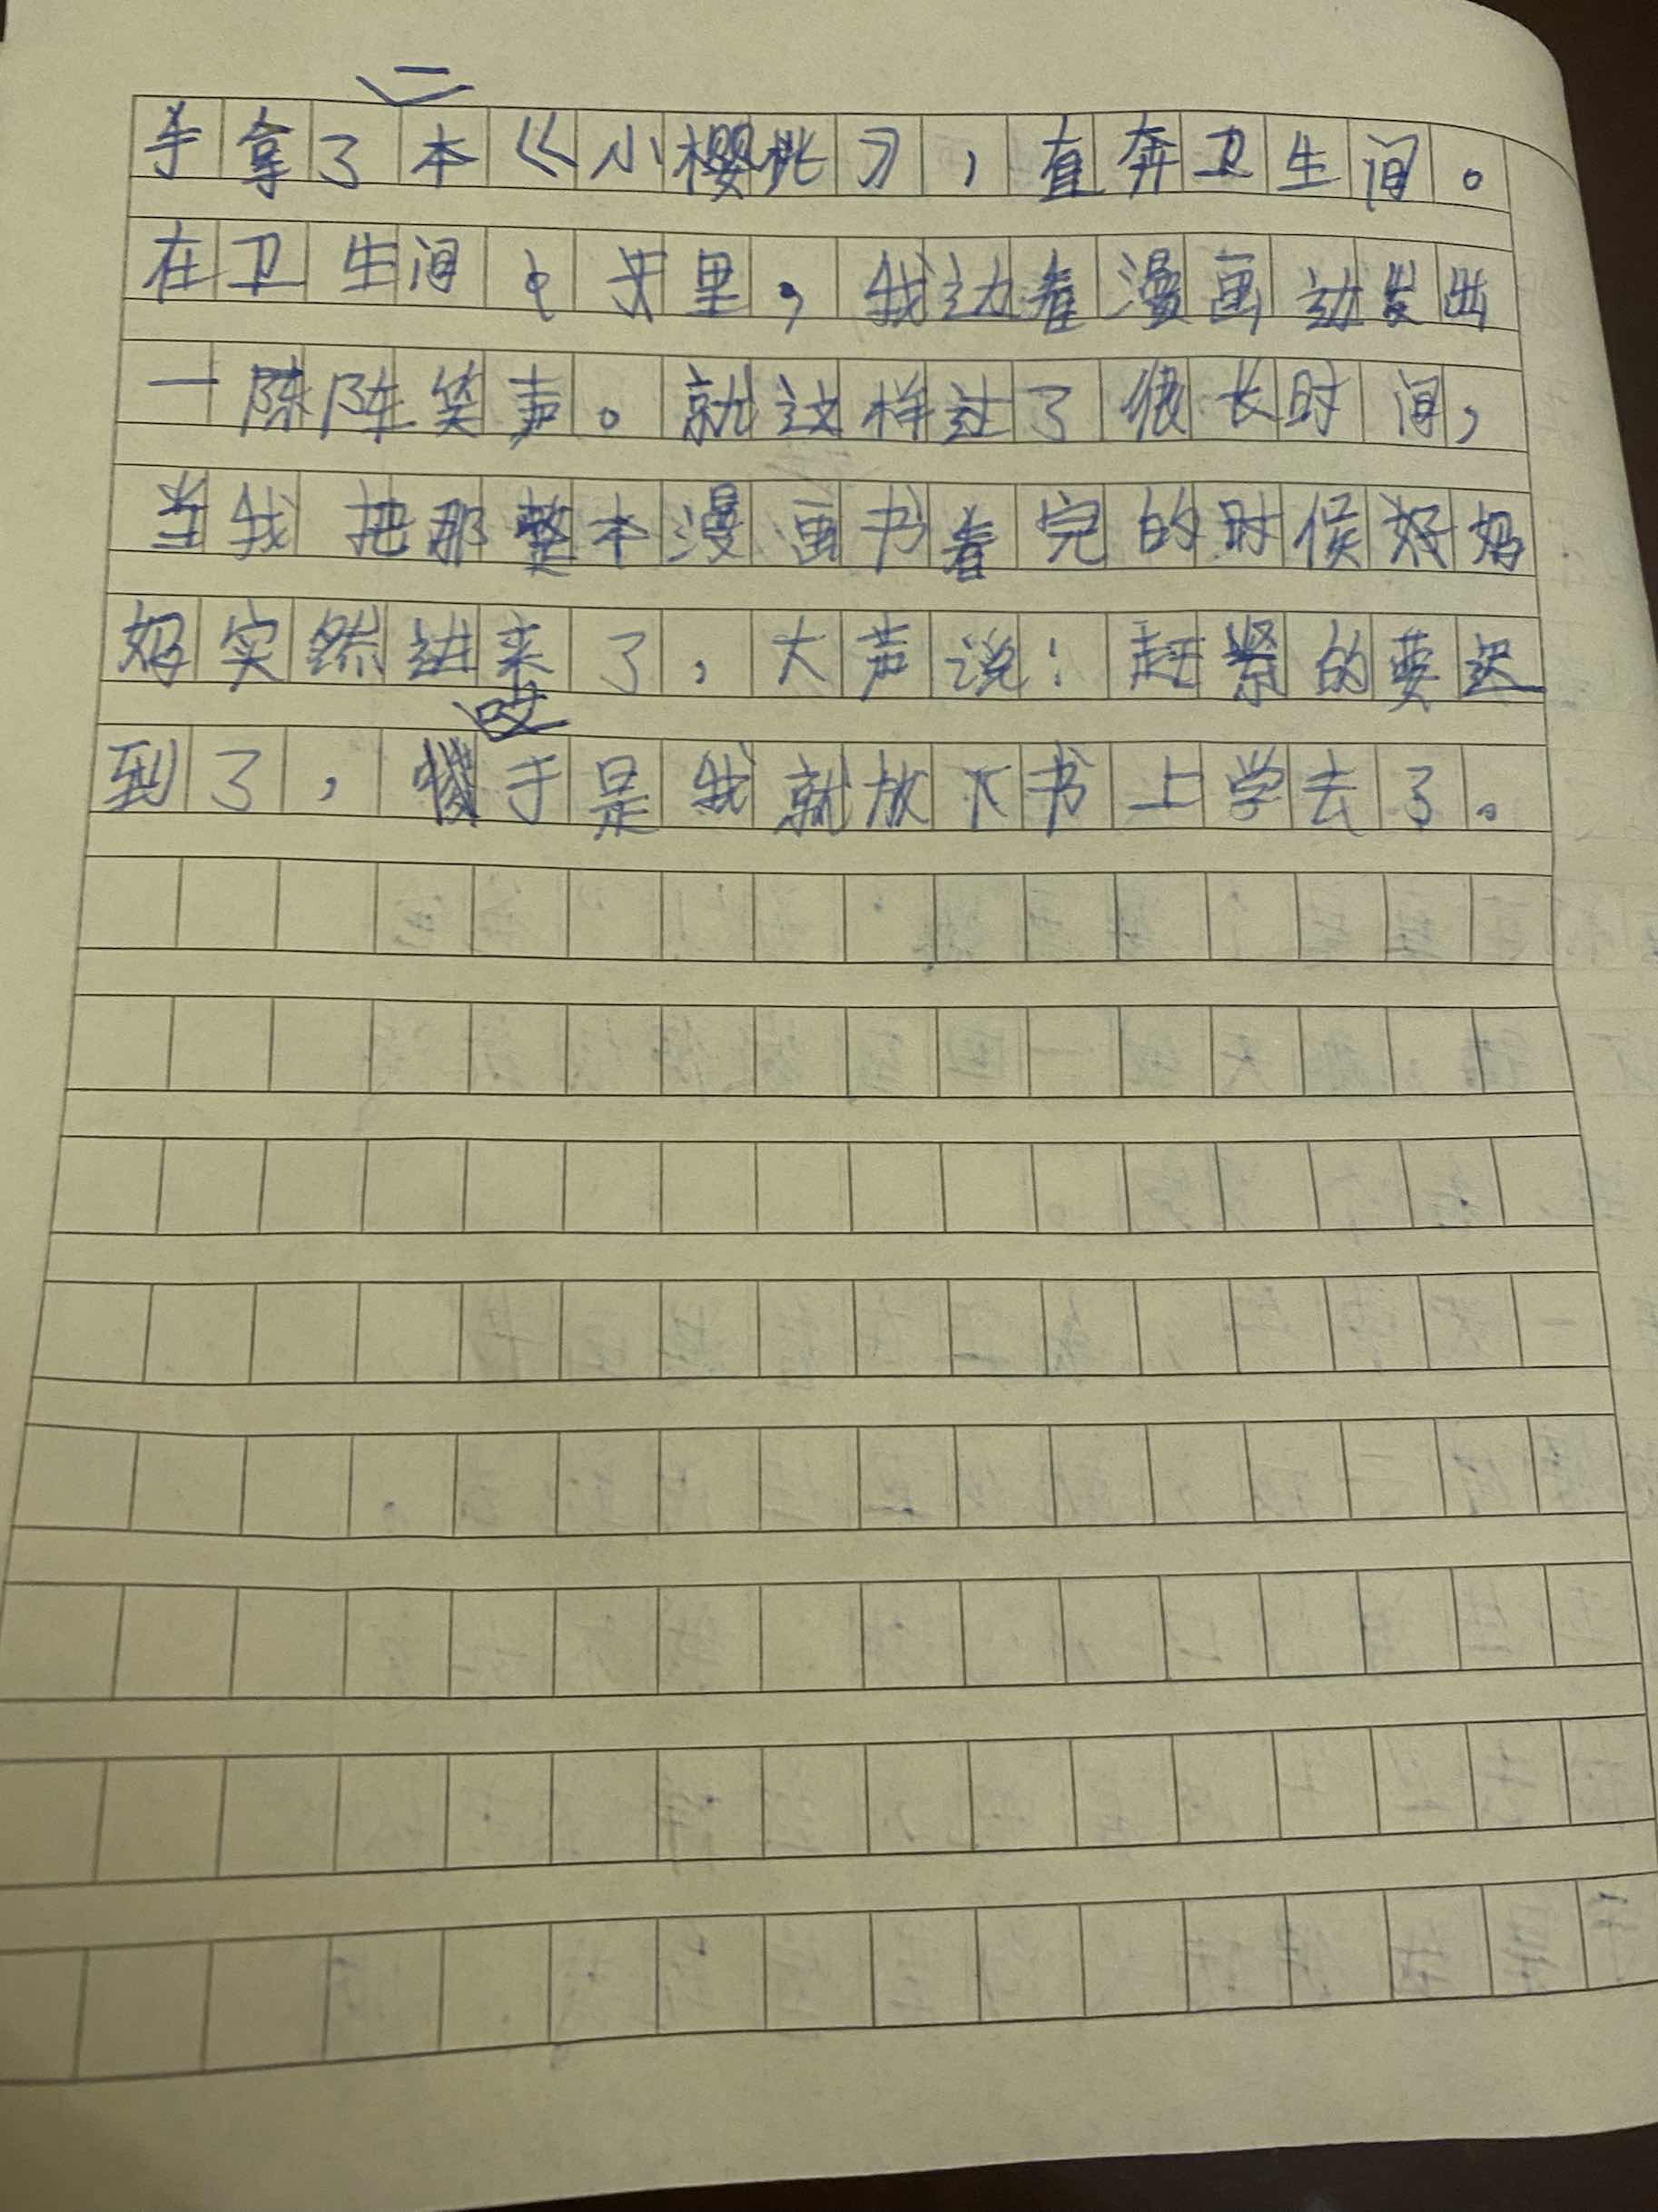 手拿了一本《小樱桃》,直奔卫生间。
在卫生间里,我边看漫画边发出
一阵阵笑声。就这样过了很长时间,
当我把那整本漫画书看完的时候妈
妈突然进来了,大声说:赶紧的要迟
到了,哎于是我就放下书上学去了。